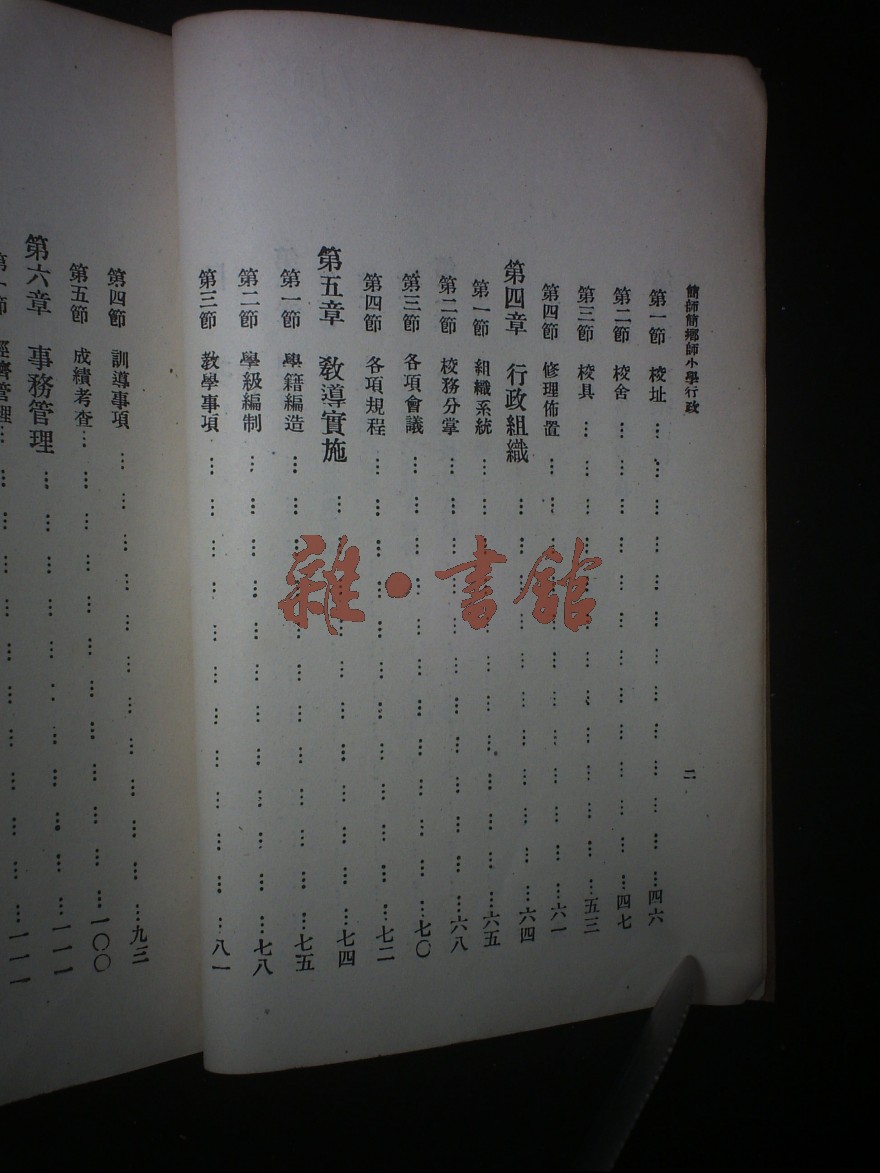 簡師簡鄉師小學行政
二
第一節 校址 … … … … … … … … … …四六
第二節 校舍 … … … … … … … … … …四七
第三節 校具 … … … … … … … … … …五三
第四節 修理佈置 … … … … … … … … …六一
第四章 行政組織 … … … … … … … … …六四
第一節 組織系統 … … … … … … … … …六五
第二節 校務分掌 … … … … … … … … …六八
第三節 各項會議 … … … … … … … … …七〇
第四節 各項規程 … … … … … … … … …七二
第五章 敎導實施 … … … … … … … … …七四
第一節 學籍編造 … … … … … … … … …七五
第二節 學級編制 … … … … … … … … …七八
第三節 敎學事項 … … … … … … … … …八一
第四節 訓導事項 … … … … … … … … …九三
第五節 成績考查… … … … … … … … …一〇〇
第六章 事務管理 … … … … … … … …一一一
第一節 經濟管理… … … … … … … …一一一
雜·書館